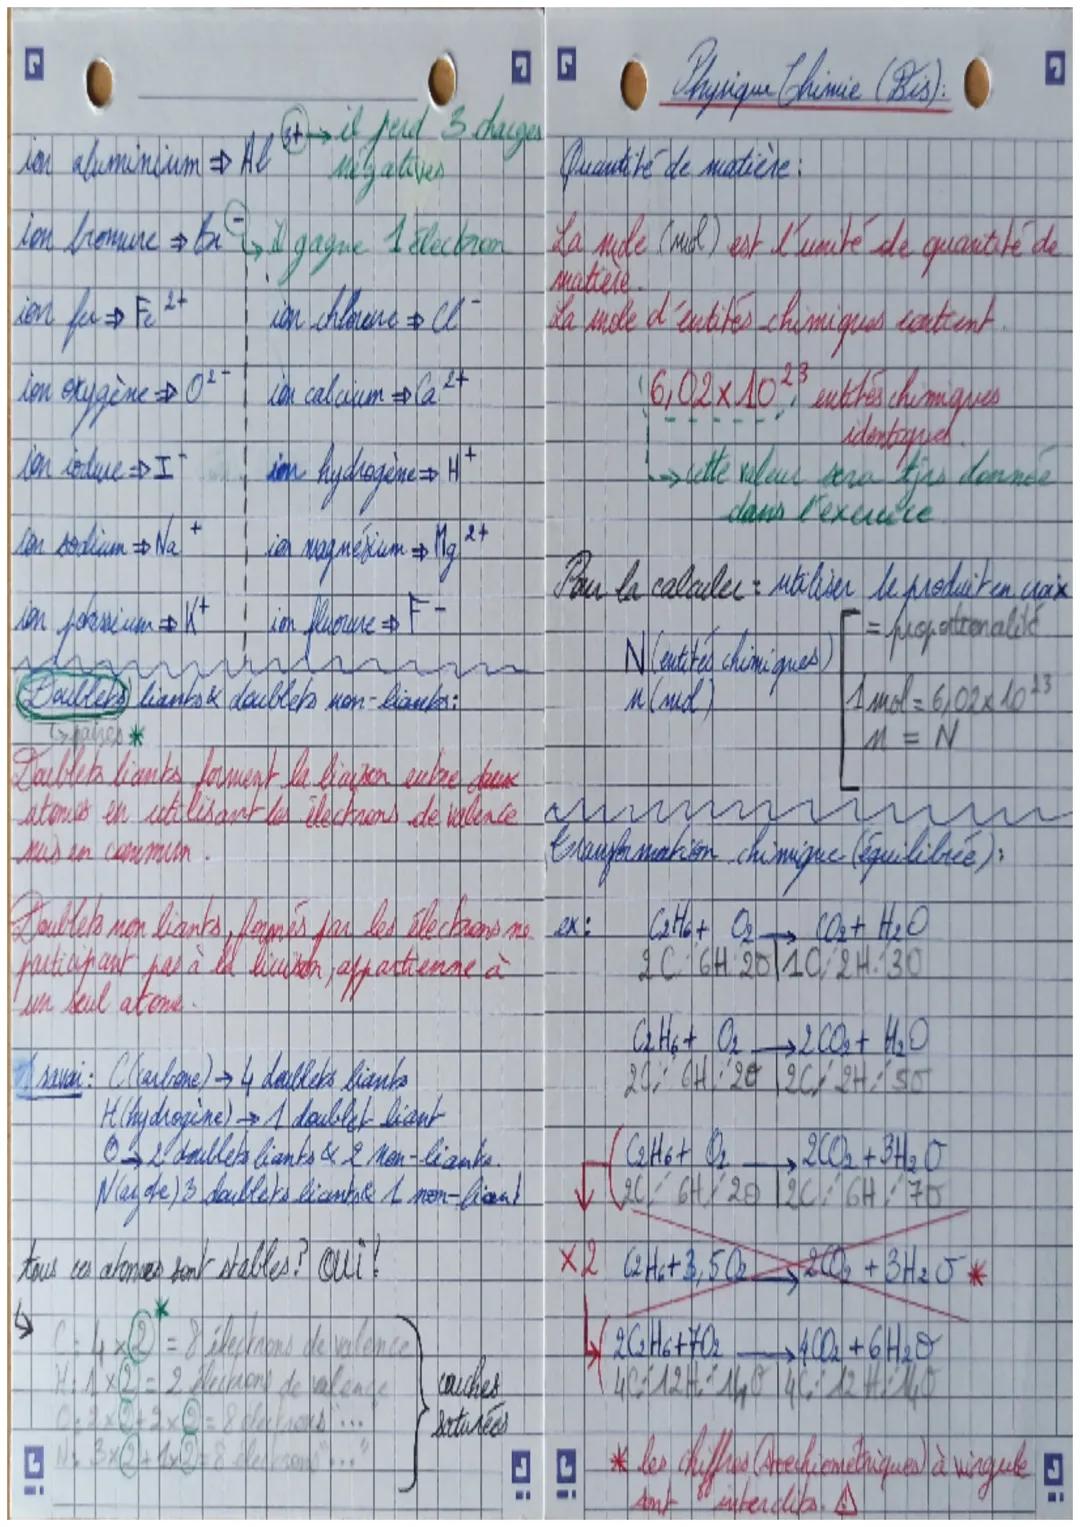 ion aluminium ⇒ Al 3+ → il perd 3 charges
négatives
ion bromure ⇒ Br - ↳ il gagne 1 électron
ion fer ⇒ Fe 2+
ion chlorure ⇒ Cl -
ion oxygène ⇒ O 2-
ion calcium ⇒ Ca 2+
ion iodure ⇒ I -
ion hydrogène ⇒ H +
ion sodium ⇒ Na +
ion magnésium ⇒ Mg 2+
ion potassium ⇒ K+
ion fluorure ⇒ F -
Doublets liants & doublets non-liants:
↳ paires *
Doublets liants forment la liaison entre deux
atomes en utilisant les électrons de valence
mis en commun.
Doublets non liants, formés par les électrons ne
participant pas à la liaison, appartienne à
un seul atome.
À savoir: C (carbone) → 4 doublets liants
H (hydrogène) → 1 doublet liant
O → 2 doublets liants & 2 non-liants.
N (azote) 3 doublets liants & 1 non-liant
tous ces atomes sont stables? OUI!
↳ *
C: 4 x 2 = 8 électrons de valence
H: 1 x 2 = 2 électrons de valence
O: 2x2+2x2 = 8 électrons "..."
N: 3x2+1x2=8 électrons "..."
couches
saturées
Physique Chimie (Bis):
Quantité de matière:
La mole (mol) est l'unité de quantité de
matière.
La mole d'entités chimiques contient
6,02 x 10 23 entités chimiques
identiques.
↳ cette valeur sera tjrs donnée
dans l'exercice
Pour la calculer = utiliser le produit en croix
= proportionalité
N (entités chimiques)
n (mol)
1 mol = 6,02 x 10 23
n = N
transformation chimique (équilibrée):
ex: C2H6 + O2 → CO2 + H2O
2C 6H 2O | 1C 2H 3O
C2H6 + O2 → 2CO2 + H2O
2C 6H 2O | 2C 2H 5O
C2H6 + O2 → 2CO2 + 3H2O
2C 6H 2O | 2C 6H 7O
x2 C2H6 + 3,5O2 → 2CO2 + 3H2O *
2C2H6 + 7O2 → 4CO2 + 6H2O
4C 12H 14O | 4C 12H 14O
* les chiffres (stoechiométriques) à virgule
sont interdits. ⚠